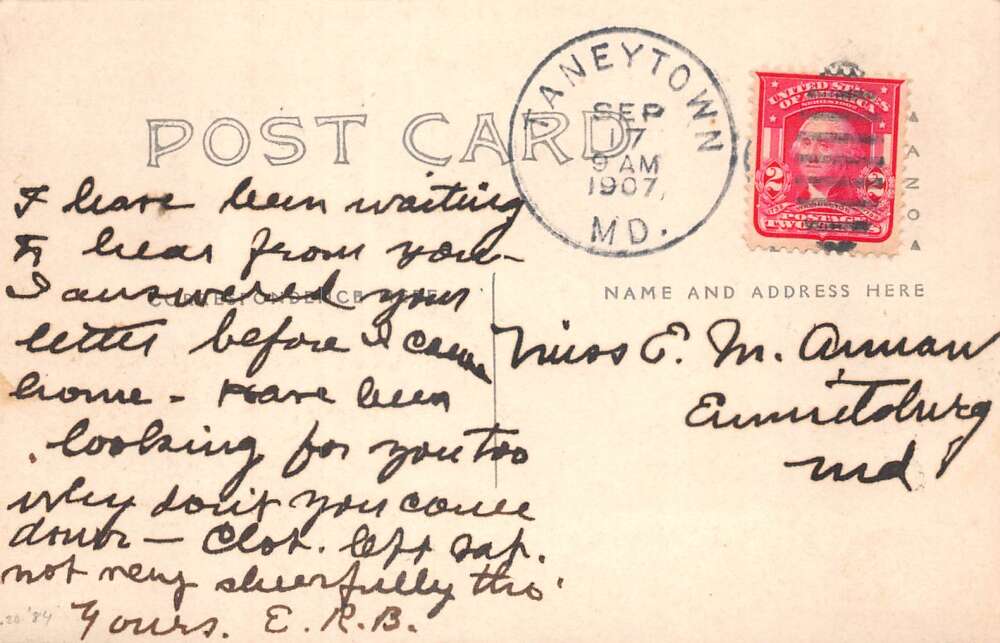 POST CARD
TANEYTOWN
SEP
17
9 AM
1907
MD.
UNITED STATES
OF AMERICA
2 2
POSTAGE
TWO CENTS
I have been waiting
to hear from you -
I answered your
letter before I came
home - Have been
looking for you too
why don't you come
down - Clot. left Sat.
not very cheerfully tho'
Yours. E. R. B.
CORRESPONDENCE HERE
NAME AND ADDRESS HERE
Miss E. M. Annan
Emmitsburg
Md
'84